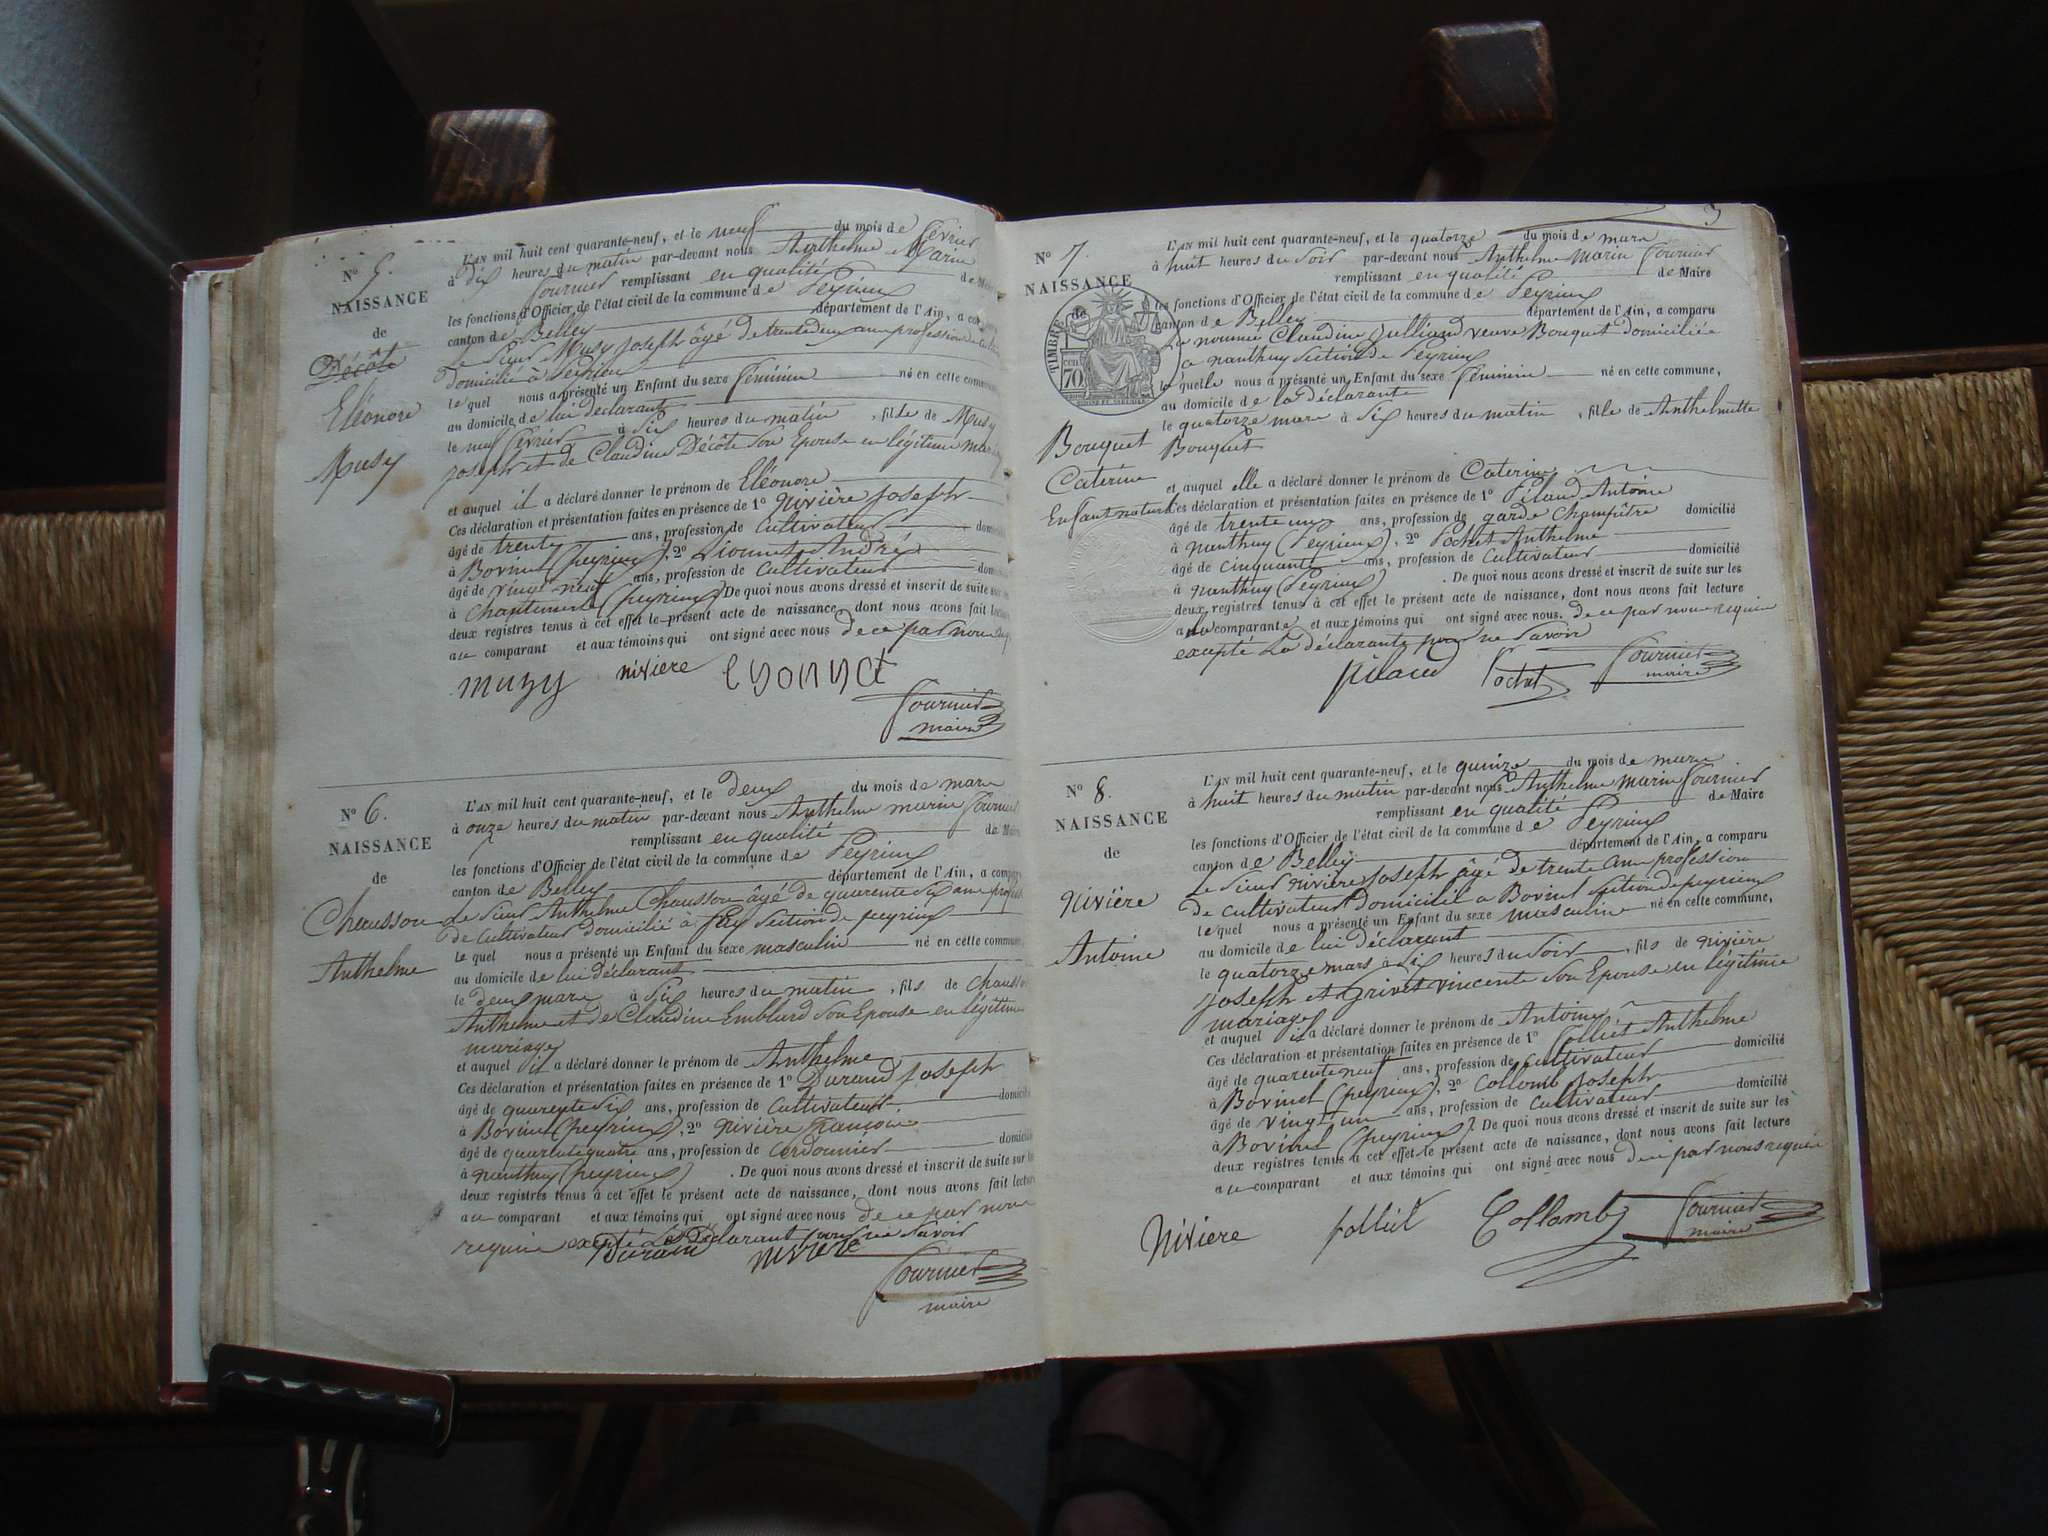 N° 5.
NAISSANCE
de
Décôte
Eléonore
Musy
L'AN mil huit cent quarante-neuf, et le neuf du mois de février
à dix heures du matin par-devant nous Anthelme Marin
Fournier remplissant en qualité de Maire
les fonctions d'Officier de l'état civil de la commune de Peyrieux
canton de Belley département de l'Ain, a
le sieur Musy Joseph âgé de trente deux ans profession de
domicilié à Peyrieux
lequel nous a présenté un Enfant du sexe féminin né en cette
au domicile de lui déclarant
le neuf février à six heures du matin, fille de Musy
Joseph et de Claudine Décôte son Epouse en légitime
et auquel il a déclaré donner le prénom de Eléonore
Ces déclaration et présentation faites en présence de 1° Nivière Joseph
âgé de trente ans, profession de cultivateur
à Bovinel (peyrieux), 2° Lionnet André
âgé de vingt neuf ans, profession de cultivateur
à Chantemerle (peyrieux) De quoi nous avons dressé et inscrit de suite sur
deux registres tenus à cet effet le présent acte de naissance, dont nous avons fait lecture
au comparant et aux témoins qui ont signé avec nous de ce par nous
muzy nivière
Fournier
maire
N° 6.
NAISSANCE
de
Chausson
Anthelme
L'AN mil huit cent quarante-neuf, et le deux du mois de mars
à onze heures du matin par-devant nous Anthelme marin Fournier
remplissant en qualité de Maire
les fonctions d'Officier de l'état civil de la commune de Peyrieux
canton de Belley département de l'Ain, a
Le sieur Anthelme Chausson âgé de quarente six ans
de cultivateur domicilié à fay section de peyrieux
lequel nous a présenté un Enfant du sexe masculin né en cette commune,
au domicile de lui déclarant
le deux mars à six heures du matin, fils de Chausson
Anthelme et de Claudine Emblard son Epouse en légitime
mariage
et auquel il a déclaré donner le prénom de Anthelme
Ces déclaration et présentation faites en présence de 1° Durand Joseph
âgé de quarente six ans, profession de cultivateur
à Bovinel (peyrieux), 2° nivière françois
âgé de quarante quatre ans, profession de cordonnier
à nanthuy (peyrieux). De quoi nous avons dressé et inscrit de suite sur
deux registres tenus à cet effet le présent acte de naissance, dont nous avons fait lecture
au comparant et aux témoins qui ont signé avec nous de ce par nous
requis excepté le Déclarant pour ne savoir
Durand nivière
Fournier
maire
3
N° 7.
NAISSANCE
de
TIMBRE
70
Bouquet
Caterine
Enfant naturel
L'AN mil huit cent quarante-neuf, et le quatorze du mois de mars
à huit heures du soir par-devant nous Anthelme marin Fournier
remplissant en qualité de Maire
les fonctions d'Officier de l'état civil de la commune de Peyrieux
canton de Belley département de l'Ain, a comparu
La nommée Claudine Julliand veuve Bouquet domiciliée
a nanthuy section de Peyrieux
laquelle nous a présenté un Enfant du sexe féminin né en cette commune,
au domicile de la déclarante
le quatorze mars à six heures du matin, fille de Anthelmette
Bouquet
et auquel elle a déclaré donner le prénom de Caterine
Ces déclaration et présentation faites en présence de 1° Pilaud Antoine
âgé de trente un ans, profession de garde champêtre domicilié
à nanthuy (Peyrieux), 2° Pochet Anthelme
âgé de cinquante ans, profession de cultivateur domicilié
à nanthuy (Peyrieux). De quoi nous avons dressé et inscrit de suite sur les
deux registres tenus à cet effet le présent acte de naissance, dont nous avons fait lecture
a la comparante et aux témoins qui ont signé avec nous. de ce par nous requis
excepté La déclarante pour ne savoir
Fournier
maire
N° 8.
NAISSANCE
de
nivière
Antoine
L'AN mil huit cent quarante-neuf, et le quinze du mois de mars
à huit heures du matin par-devant nous Anthelme marin Fournier
remplissant en qualité de Maire
les fonctions d'Officier de l'état civil de la commune de Peyrieux
canton de Belley département de l'Ain, a comparu
Le sieur nivière Joseph âgé de trente ans profession
de cultivateur domicilié a Bovinel section de peyrieux
lequel nous a présenté un Enfant du sexe masculin né en cette commune,
au domicile de lui déclarant
le quatorze mars à six heures du soir, fils de nivière
Joseph et Grivet vincente son Epouse en légitime
mariage
et auquel il a déclaré donner le prénom de Antoine
Ces déclaration et présentation faites en présence de 1° Folliet Anthelme
âgé de quarente neuf ans, profession de cultivateur domicilié
à Bovinel (peyrieux), 2° Collomb Joseph
âgé de vingt un ans, profession de cultivateur domicilié
à Bovinel (peyrieux). De quoi nous avons dressé et inscrit de suite sur les
deux registres tenus à cet effet le présent acte de naissance, dont nous avons fait lecture
au comparant et aux témoins qui ont signé avec nous de ce par nous requis
Nivière folliet Collomb Fournier
maire